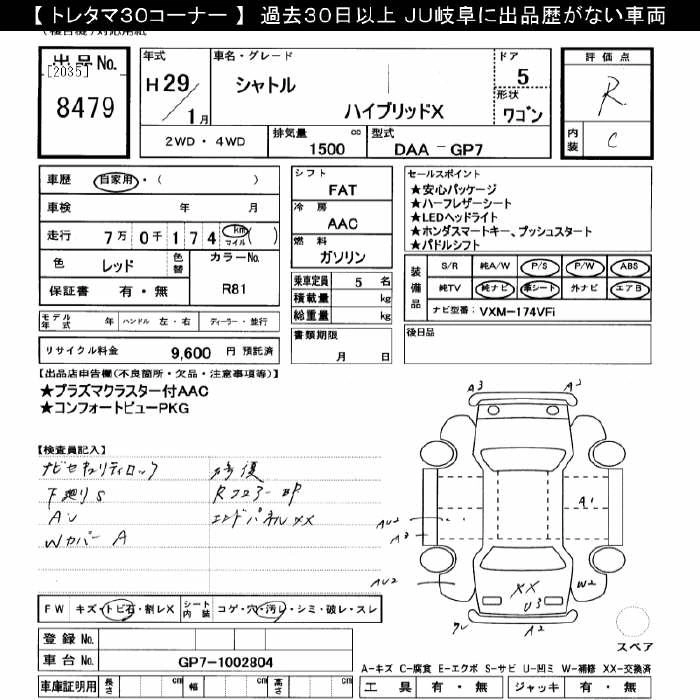 【 トレタマ30コーナー 】 過去30日以上 JU岐阜に出品歴がない車両
出品No.
[2035]
8479
年式
H 29 / 1月
車名・グレード
シャトル
ハイブリッドX
ドア
5
形状
ワゴン
評価点
R
内装
C
2WD ・ 4WD
排気量 cc
1500
型式
DAA - GP7
車歴 自家用・( )
車検 年 月
走行 7万 0千 1 7 4 km マイル ( )
色 レッド
色替
カラーNo.
R81
保証書 有・無
モデル年式 年 ハンドル 左・右 ディーラー・並行
リサイクル料金 9,600 円 預託済
シフト
FAT
冷房
AAC
燃料
ガソリン
乗車定員 5 名
積載量 kg
総重量 kg
書類期限
月 日
セールスポイント
★安心パッケージ
★ハーフレザーシート
★LEDヘッドライト
★ホンダスマートキー、プッシュスタート
★パドルシフト
装備品
S/R 純A/W P/S P/W ABS
純TV 純ナビ 革シート 外ナビ エアB
ナビ型番: VXM-174VFi
後日品
【出品店申告欄(不良箇所・欠品・注意事項等)】
★プラズマクラスター付AAC
★コンフォートビューPKG
【検査員記入】
ナビセキュリティロック
下廻りS
AU
Wカバー A
修復
Rフロアー凹
エンドパネルXX
A3
A1
AU2
A3
AU2
W2
XX
U3
A2
スペア
FW キズ・トビ石・割レX
シート内装 コゲ・穴・汚レ・シミ・破レ・スレ
登録No.
車台No. GP7-1002804
車庫証明用 長さ cm 幅 cm 高さ cm
A-キズ C-腐食 E-エクボ S-サビ U-凹ミ W-補修 XX-交換済
工具 有・無 ジャッキ 有・無